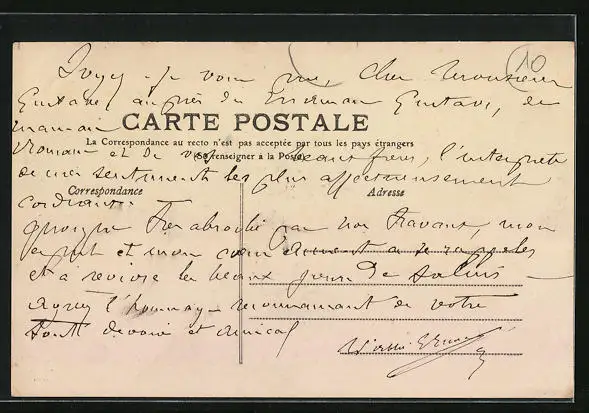 10
Soyez je vous prie, Cher Monsieur
Gustave, auprès du Gustave, de
maman
CARTE POSTALE
La Correspondance au recto n'est pas acceptée par tous les pays étrangers
(Se renseigner à la Poste)
Romain et de vos beaux frères, l'interprète
de mes sentiments les plus affectueusement
Correspondance
Adresse
cordiaux.
Quoique absorbé par nos travaux, mon
esprit et mon cœur aiment à se rappeler
et à revivre les beaux jours de
Agréez l'hommage reconnaissant de votre
tout dévoué et amical